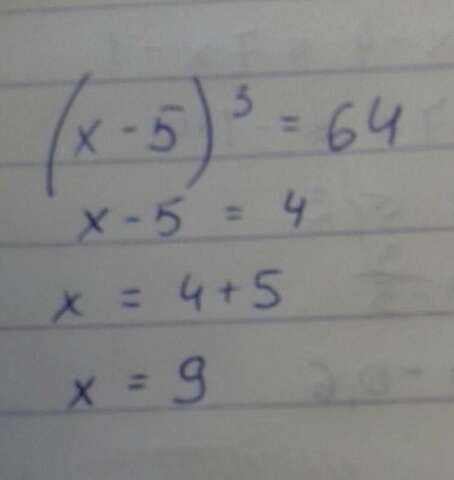 (x - 5)³ = 64
x - 5 = 4
x = 4 + 5
x = 9